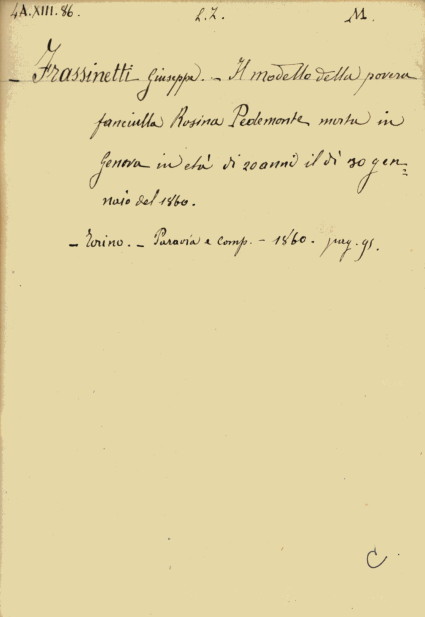 4A.XIII.86. L.I. M.
- Frassinetti Giuseppe. - Il modello della povera
fanciulla Rosina Pedemonte morta in
Genova in età di 20 anni il dì 30 gen=
naio del 1860.
- Torino. - Paravia e comp. - 1860. pag. 91.
C